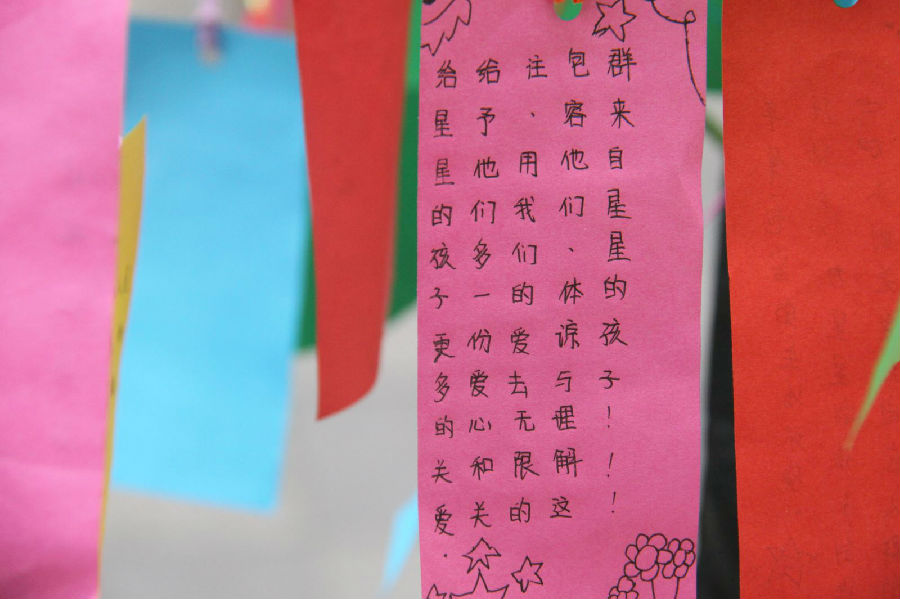 给星星的孩子更多的关爱.
给予他们多一份爱心和关
注、用我们的爱去无限的
包容他们、体谅与理解这
群来自星星的孩子！！！